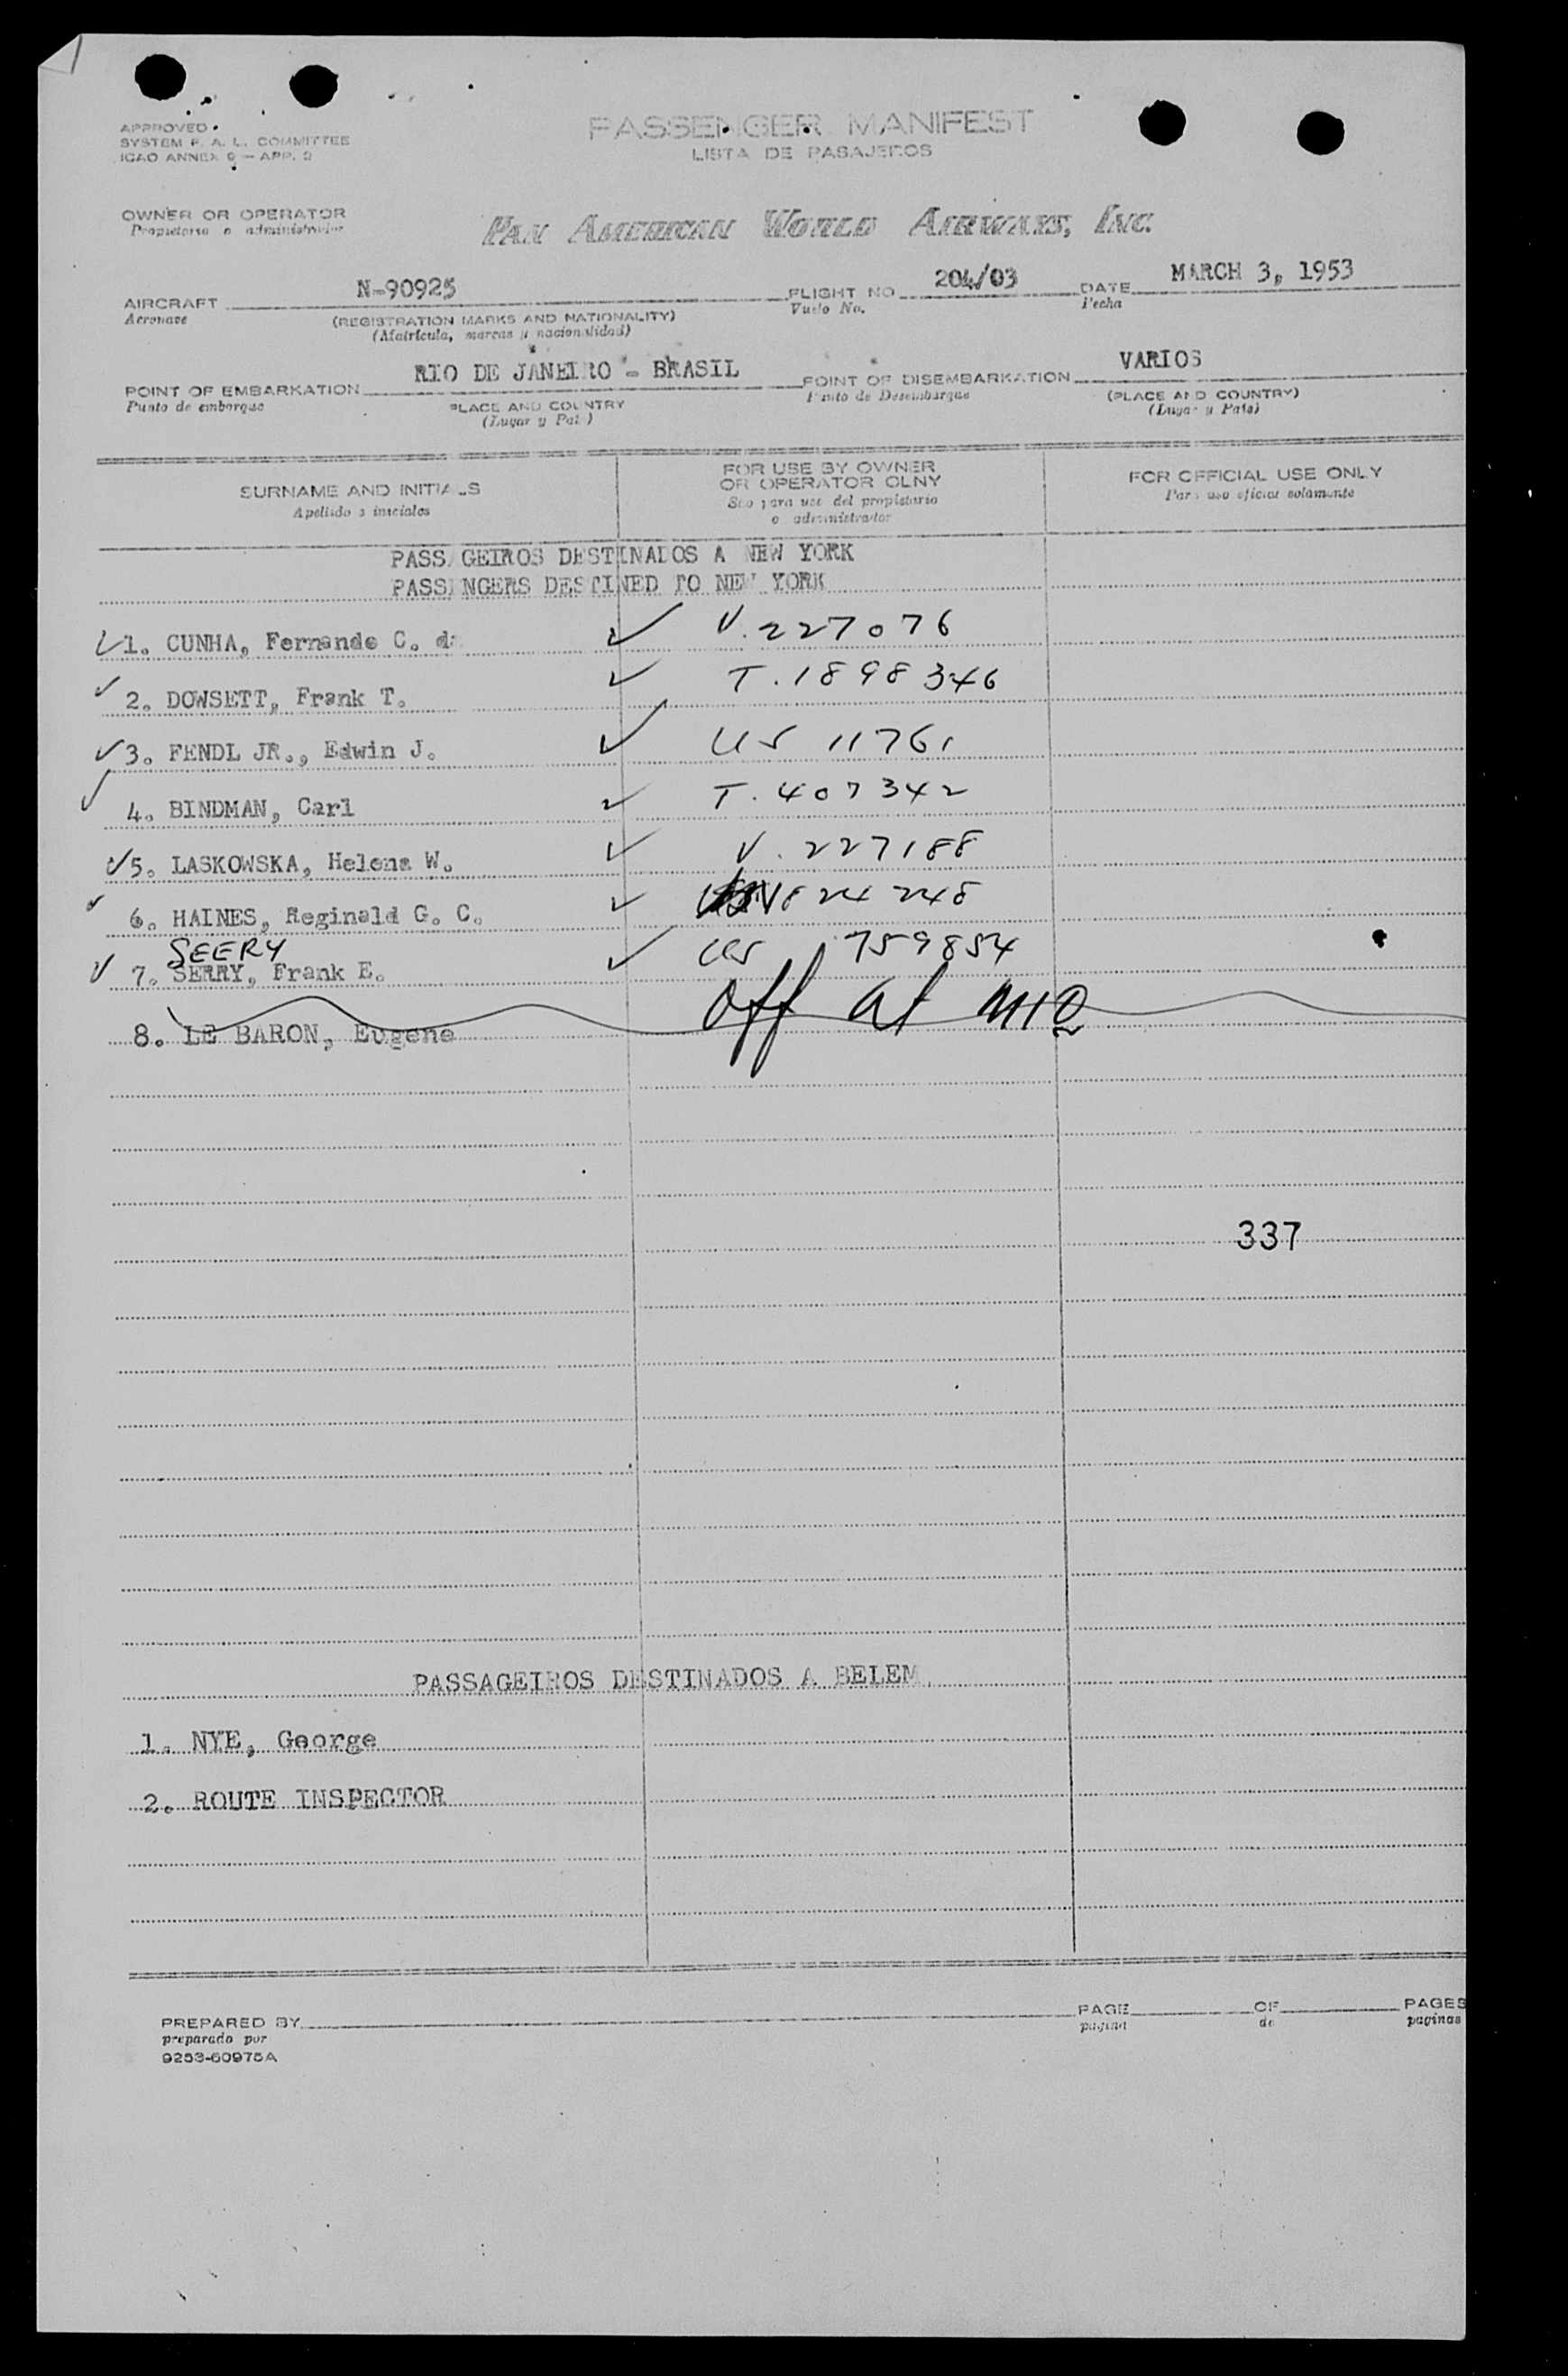 APPROVED
SYSTEM F. A. L. COMMITTEE
ICAO ANNEX 9 — APP. 2
PASSENGER MANIFEST
LISTA DE PASAJEROS
OWNER OR OPERATOR
Propietario o administrador
PAN AMERICAN WORLD AIRWAYS, INC.
AIRCRAFT N-90925 FLIGHT NO 204/03 DATE MARCH 3, 1953
Aeronave (REGISTRATION MARKS AND NATIONALITY) Vuelo No. Fecha
(Matricula, marcas y nacionalidad)
POINT OF EMBARKATION RIO DE JANEIRO - BRASIL POINT OF DISEMBARKATION VARIOS
Punto de embarque PLACE AND COUNTRY Punto de Desembarque (PLACE AND COUNTRY)
(Lugar y Pais) (Lugar y Pais)
SURNAME AND INITIALS FOR USE BY OWNER OR OPERATOR OLNY FOR OFFICIAL USE ONLY
Apellido e iniciales Sólo para uso del propietario o administrador Para uso oficial solamente
PASSAGEIROS DESTINADOS A NEW YORK
PASSENGERS DESTINED TO NEW YORK
✓ 1. CUNHA, Fernando C. da ✓ V. 227076
✓ 2. DOWSETT, Frank T. ✓ T. 1898346
✓ 3. FENDL JR., Edwin J. ✓ US 11761
✓ 4. BINDMAN, Carl ✓ T. 407342
✓ 5. LASKOWSKA, Helena W. ✓ V. 227188
✓ 6. HAINES, Reginald G. C. ✓ 24248
SEERY
✓ 7. SERRY, Frank E. ✓ US 759854
8. LE BARON, Eugene Off at MIQ
337
PASSAGEIROS DESTINADOS A BELEM.
1. NYE, George
2. ROUTE INSPECTOR
PREPARED BY PAGE OF PAGES
preparado por pagina de paginas
9253-60975A